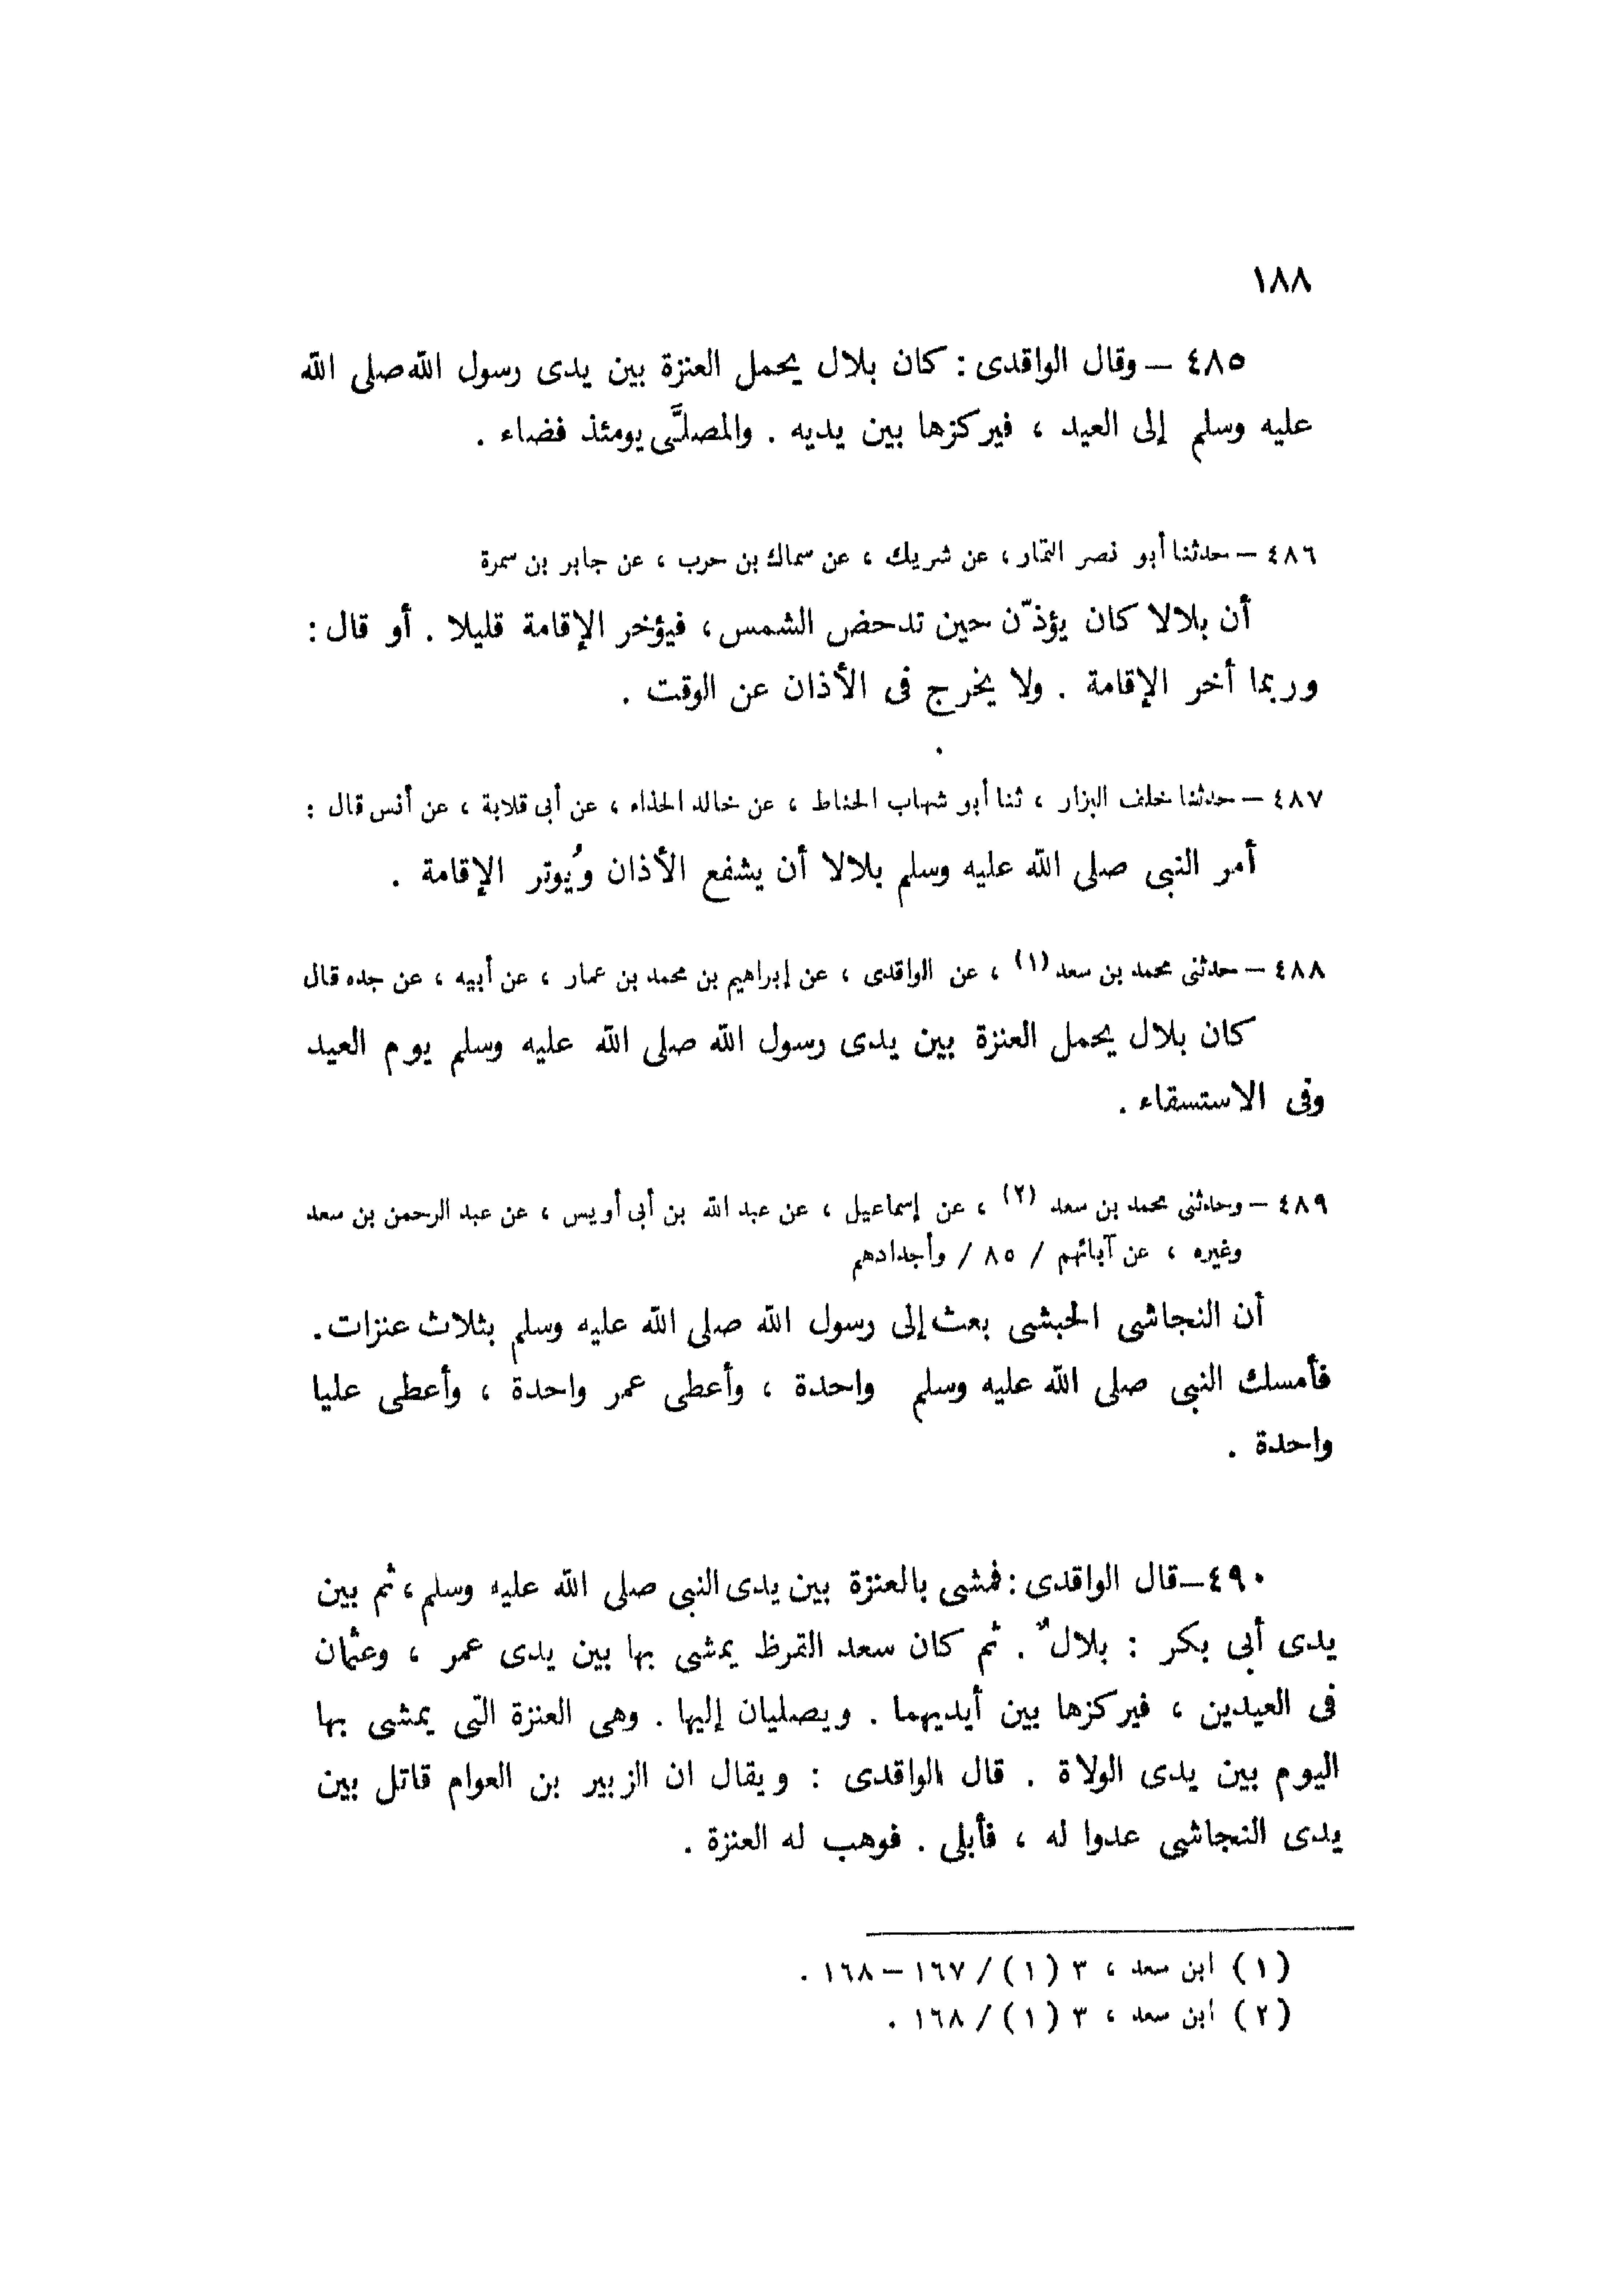 ١٨٨
٤٨٥ – وقال الواقدى : كان بلال يحمل العنزة بين يدى رسول الله صلى الله
عليه وسلم إلى العيد ، فيركزها بين يديه . والمصلَّى يومئذ فضاء .
٤٨٦ – حدثنا أبو نصر التمار ، عن شريك ، عن سماك بن حرب ، عن جابر بن سمرة
أن بلالا كان يؤذّن حين تدحض الشمس ، فيؤخر الإقامة قليلا . أو قال :
وربما أخر الإقامة . ولا يخرج فى الأذان عن الوقت .
٤٨٧ – حدثنا خلف البزار ، ثنا أبو شهاب الحناط ، عن خالد الحذاء ، عن أبى قلابة ، عن أنس قال :
أمر النبى صلى الله عليه وسلم بلالا أن يشفع الأذان ويُوتر الإقامة .
٤٨٨ – حدثنى محمد بن سعد (١) ، عن الواقدى ، عن إبراهيم بن محمد بن عمار ، عن أبيه ، عن جده قال
كان بلال يحمل العنزة بين يدى رسول الله صلى الله عليه وسلم يوم العيد
وفى الاستسقاء .
٤٨٩ – وحدثنى محمد بن سعد (٢) ، عن إسماعيل ، عن عبد الله بن أبى أويس ، عن عبد الرحمن بن سعد
وغيره ، عن آبائهم / ٨٥ / وأجدادهم
أن النجاشى الحبشى بعث إلى رسول الله صلى الله عليه وسلم بثلاث عنزات .
فأمسك النبى صلى الله عليه وسلم واحدة ، وأعطى عمر واحدة ، وأعطى عليا
واحدة .
٤٩٠ – قال الواقدى : فمشى بالعنزة بين يدى النبى صلى الله عليه وسلم ، ثم بين
يدى أبى بكر : بلالٌ . ثم كان سعد القرظ يمشى بها بين يدى عمر ، وعثمان
فى العيدين ، فيركزها بين أيديهما . ويصليان إليها . وهى العنزة التى يمشى بها
اليوم بين يدى الولاة . قال الواقدى : ويقال ان الزبير بن العوام قاتل بين
يدى النجاشى عدوا له ، فأبلى . فوهب له العنزة .
(١) ابن سعد ، ٣ (١) / ١٦٧ – ١٦٨ .
(٢) ابن سعد ، ٣ (١) / ١٦٨ .